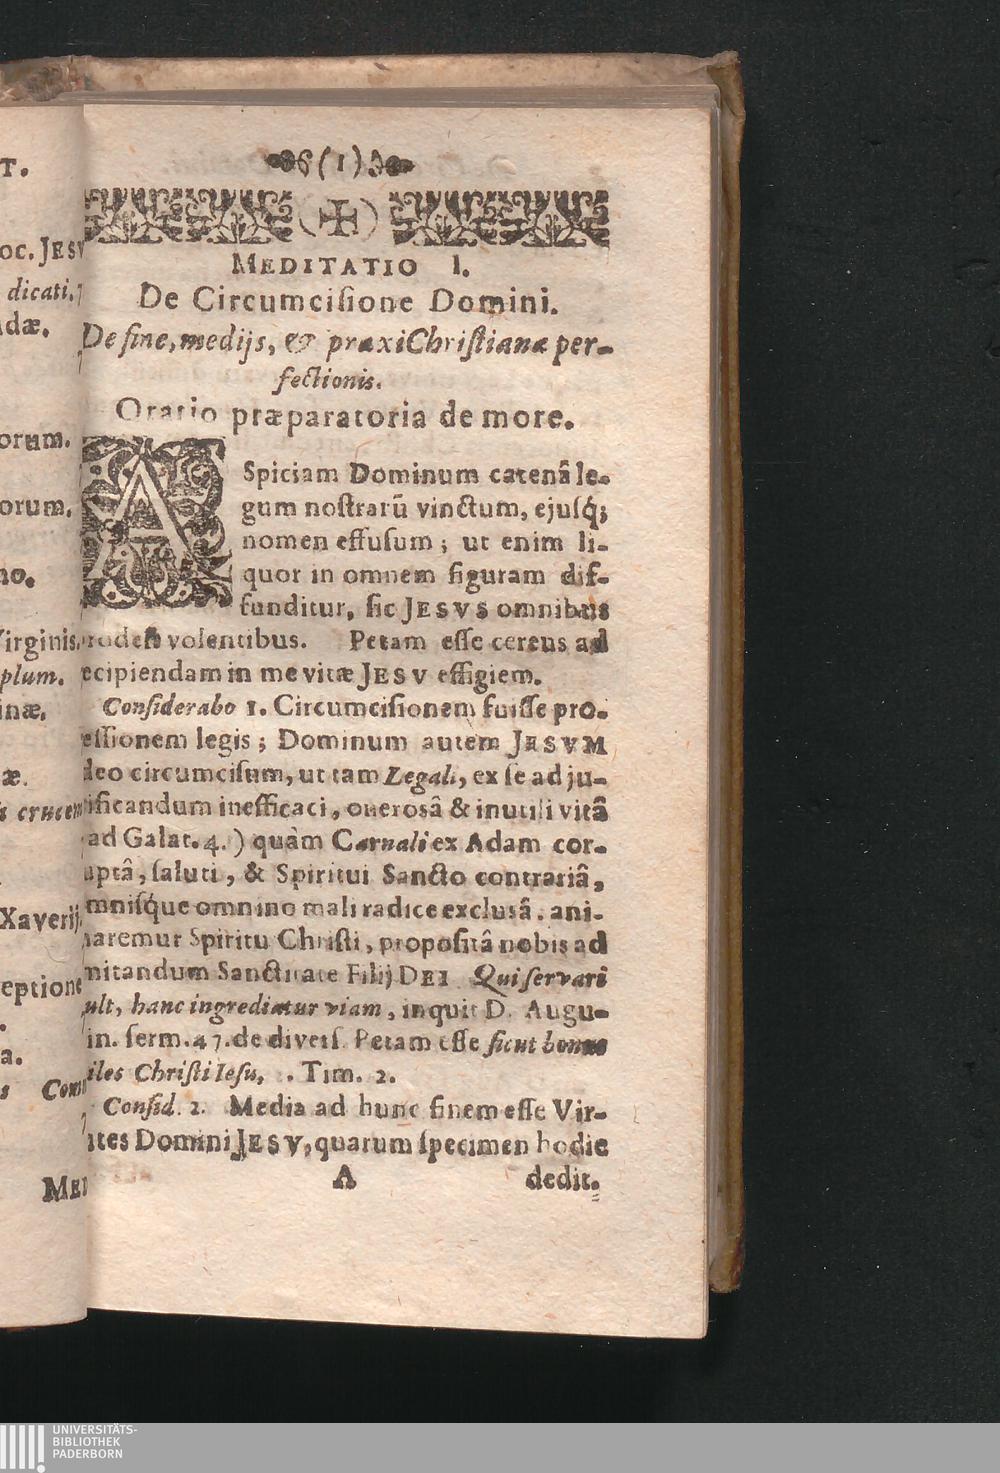 T.
oc. JESV
dicati.
dæ.
orum.
orum.
no.
Virginis.
plum.
inæ.
æ.
crucem
Xaverij.
eptione
a.
s Com
MED
(1)
MEDITATIO I.
De Circumciſione Domini.
De fine, medijs, & praxi Chriſtianæ per-
fectionis.
Oratio præparatoria de more.
ASpiciam Dominum catenâ le-
gum noſtrarũ vinctum, ejuſq́;
nomen effuſum; ut enim li-
quor in omnem figuram dif-
funditur, ſic JESVS omnibus
prodeſt volentibus. Petam eſſe cereus ad
ecipiendam in me vitæ JESV effigiem.
Conſiderabo 1. Circumciſionem fuiſſe pro-
eſſionem legis; Dominum autem JESVM
deo circumciſum, ut tam Legali, ex ſe ad ju-
ificandum inefficaci, onerosâ & inutili vitâ
ad Galat. 4.) quàm Carnali ex Adam cor-
uptâ, ſaluti, & Spiritui Sancto contrariâ,
mniſq́ue omnino mali radice excluſâ, ani-
naremur Spiritu Chriſti, propoſitâ nobis ad
mitandum Sanctitate Filij DEI. Qui ſervari
ult, hanc ingrediatur viam, inquit D. Augu-
in. ſerm. 47. de diverſ. Petam eſſe ſicut bonus
iles Chriſti Ieſu, . Tim. 2.
Conſid. 2. Media ad hunc finem eſſe Vir-
ites Domini JESV, quarum ſpecimen hodie
A dedit.
UNIVERSITÄTS-
BIBLIOTHEK
PADERBORN